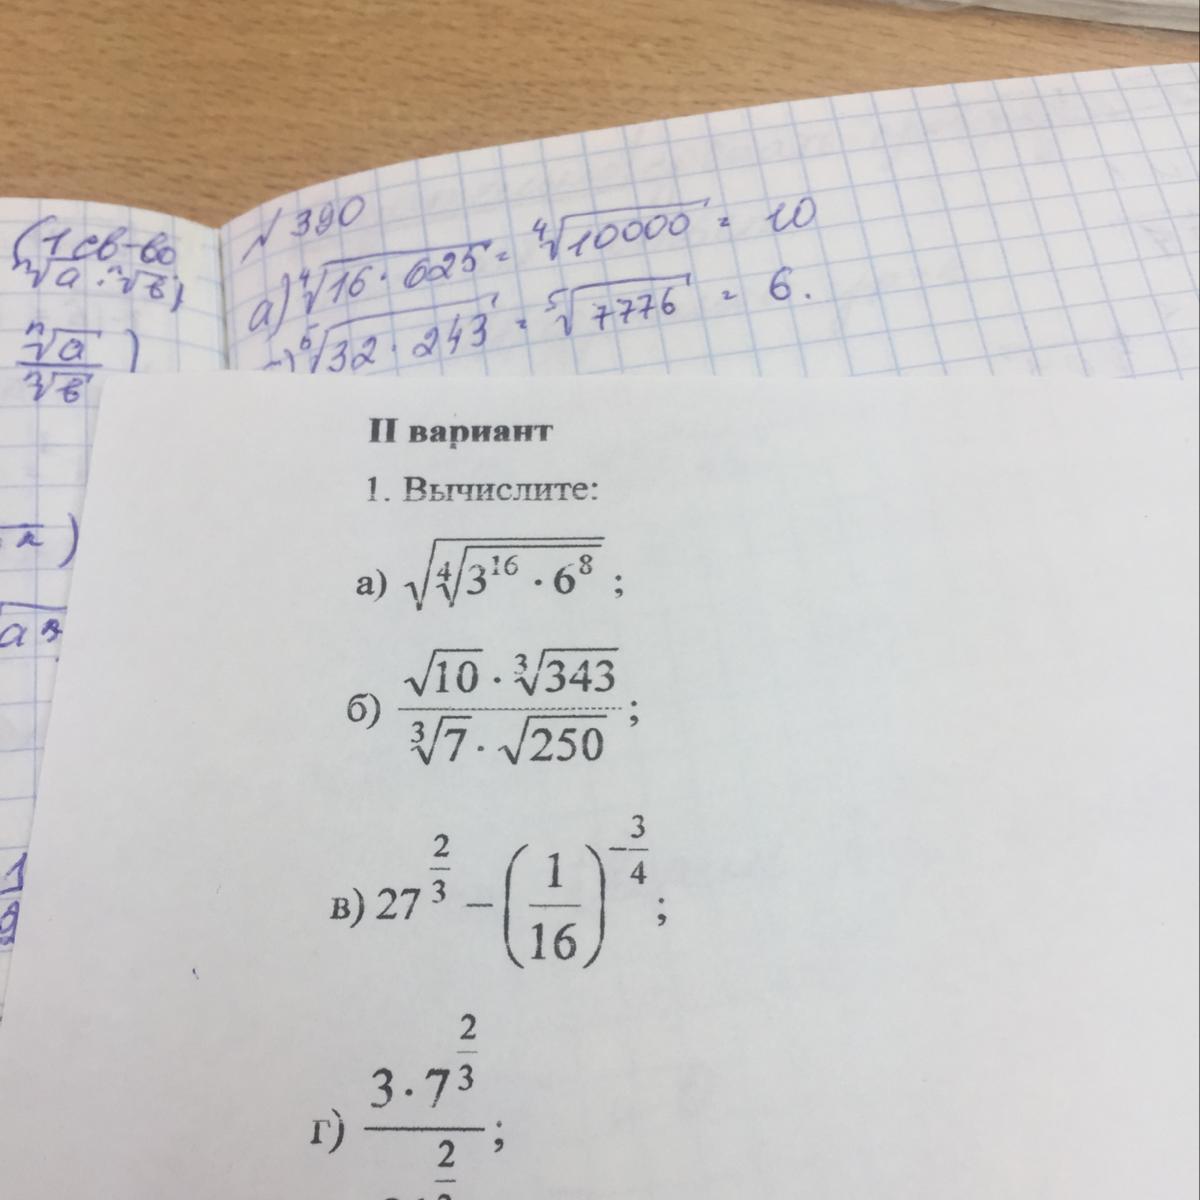 (1 св-во
ⁿ√a · ⁿ√в)
ⁿ√a
ⁿ√в )
№ 390
а) ⁴√16 · 625 = ⁴√10000 = 10
⁵√32 · 243 = ⁵√7776 = 6.
II вариант
1. Вычислите:
а) √⁴√3¹⁶ · 6⁸ ;
б) √10 · ³√343
³√7 · √250 ;
в) 27^(2/3) − (1/16)^(−3/4) ;
г) 3 · 7^(2/3) ;